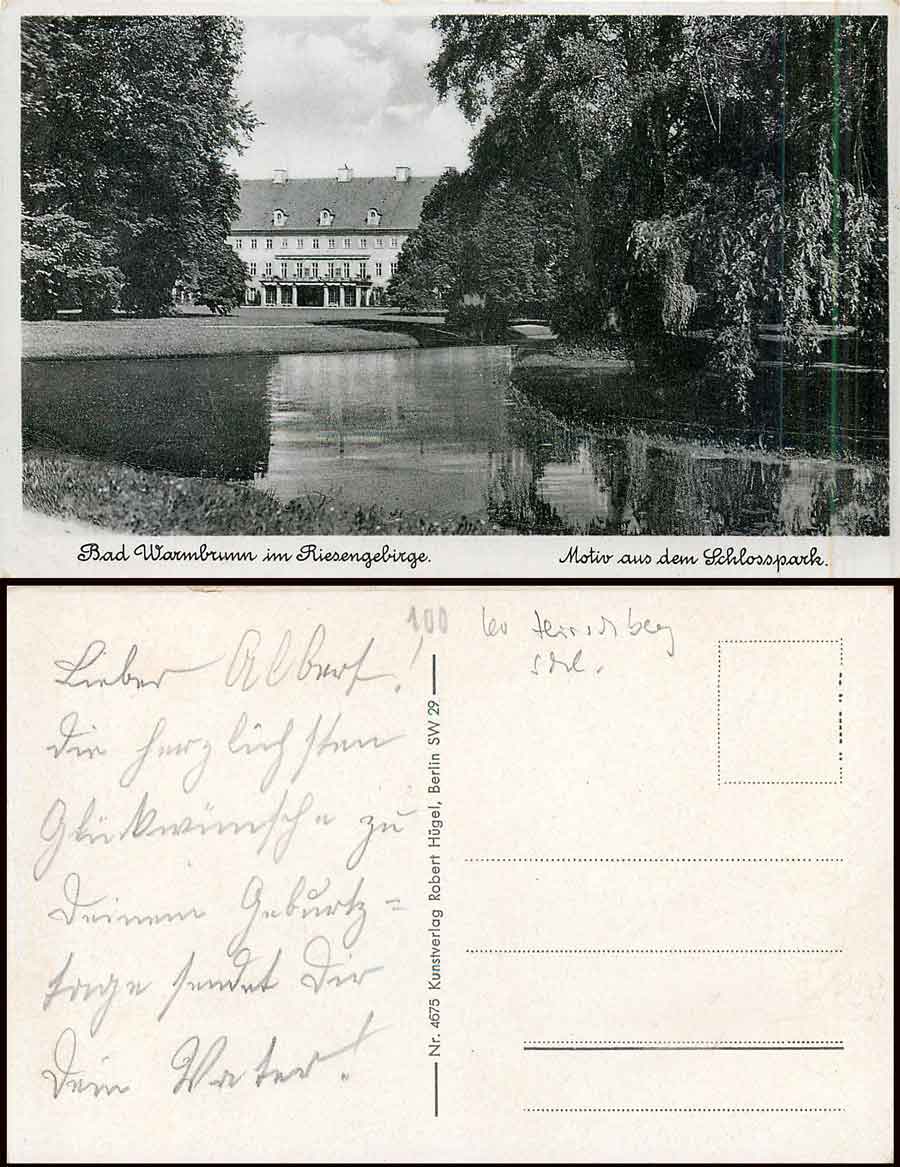 Bad Warmbrunn im Riesengebirge.
Motiv aus dem Schlosspark.
100
Lieber Albert!
die herzlichsten
Glückwünsche zu
Deinem Geburtz-
tage sendet Dir
Dein Vater!
Nr. 4675 Kunstverlag Robert Hügel, Berlin SW 29
Hirschberg